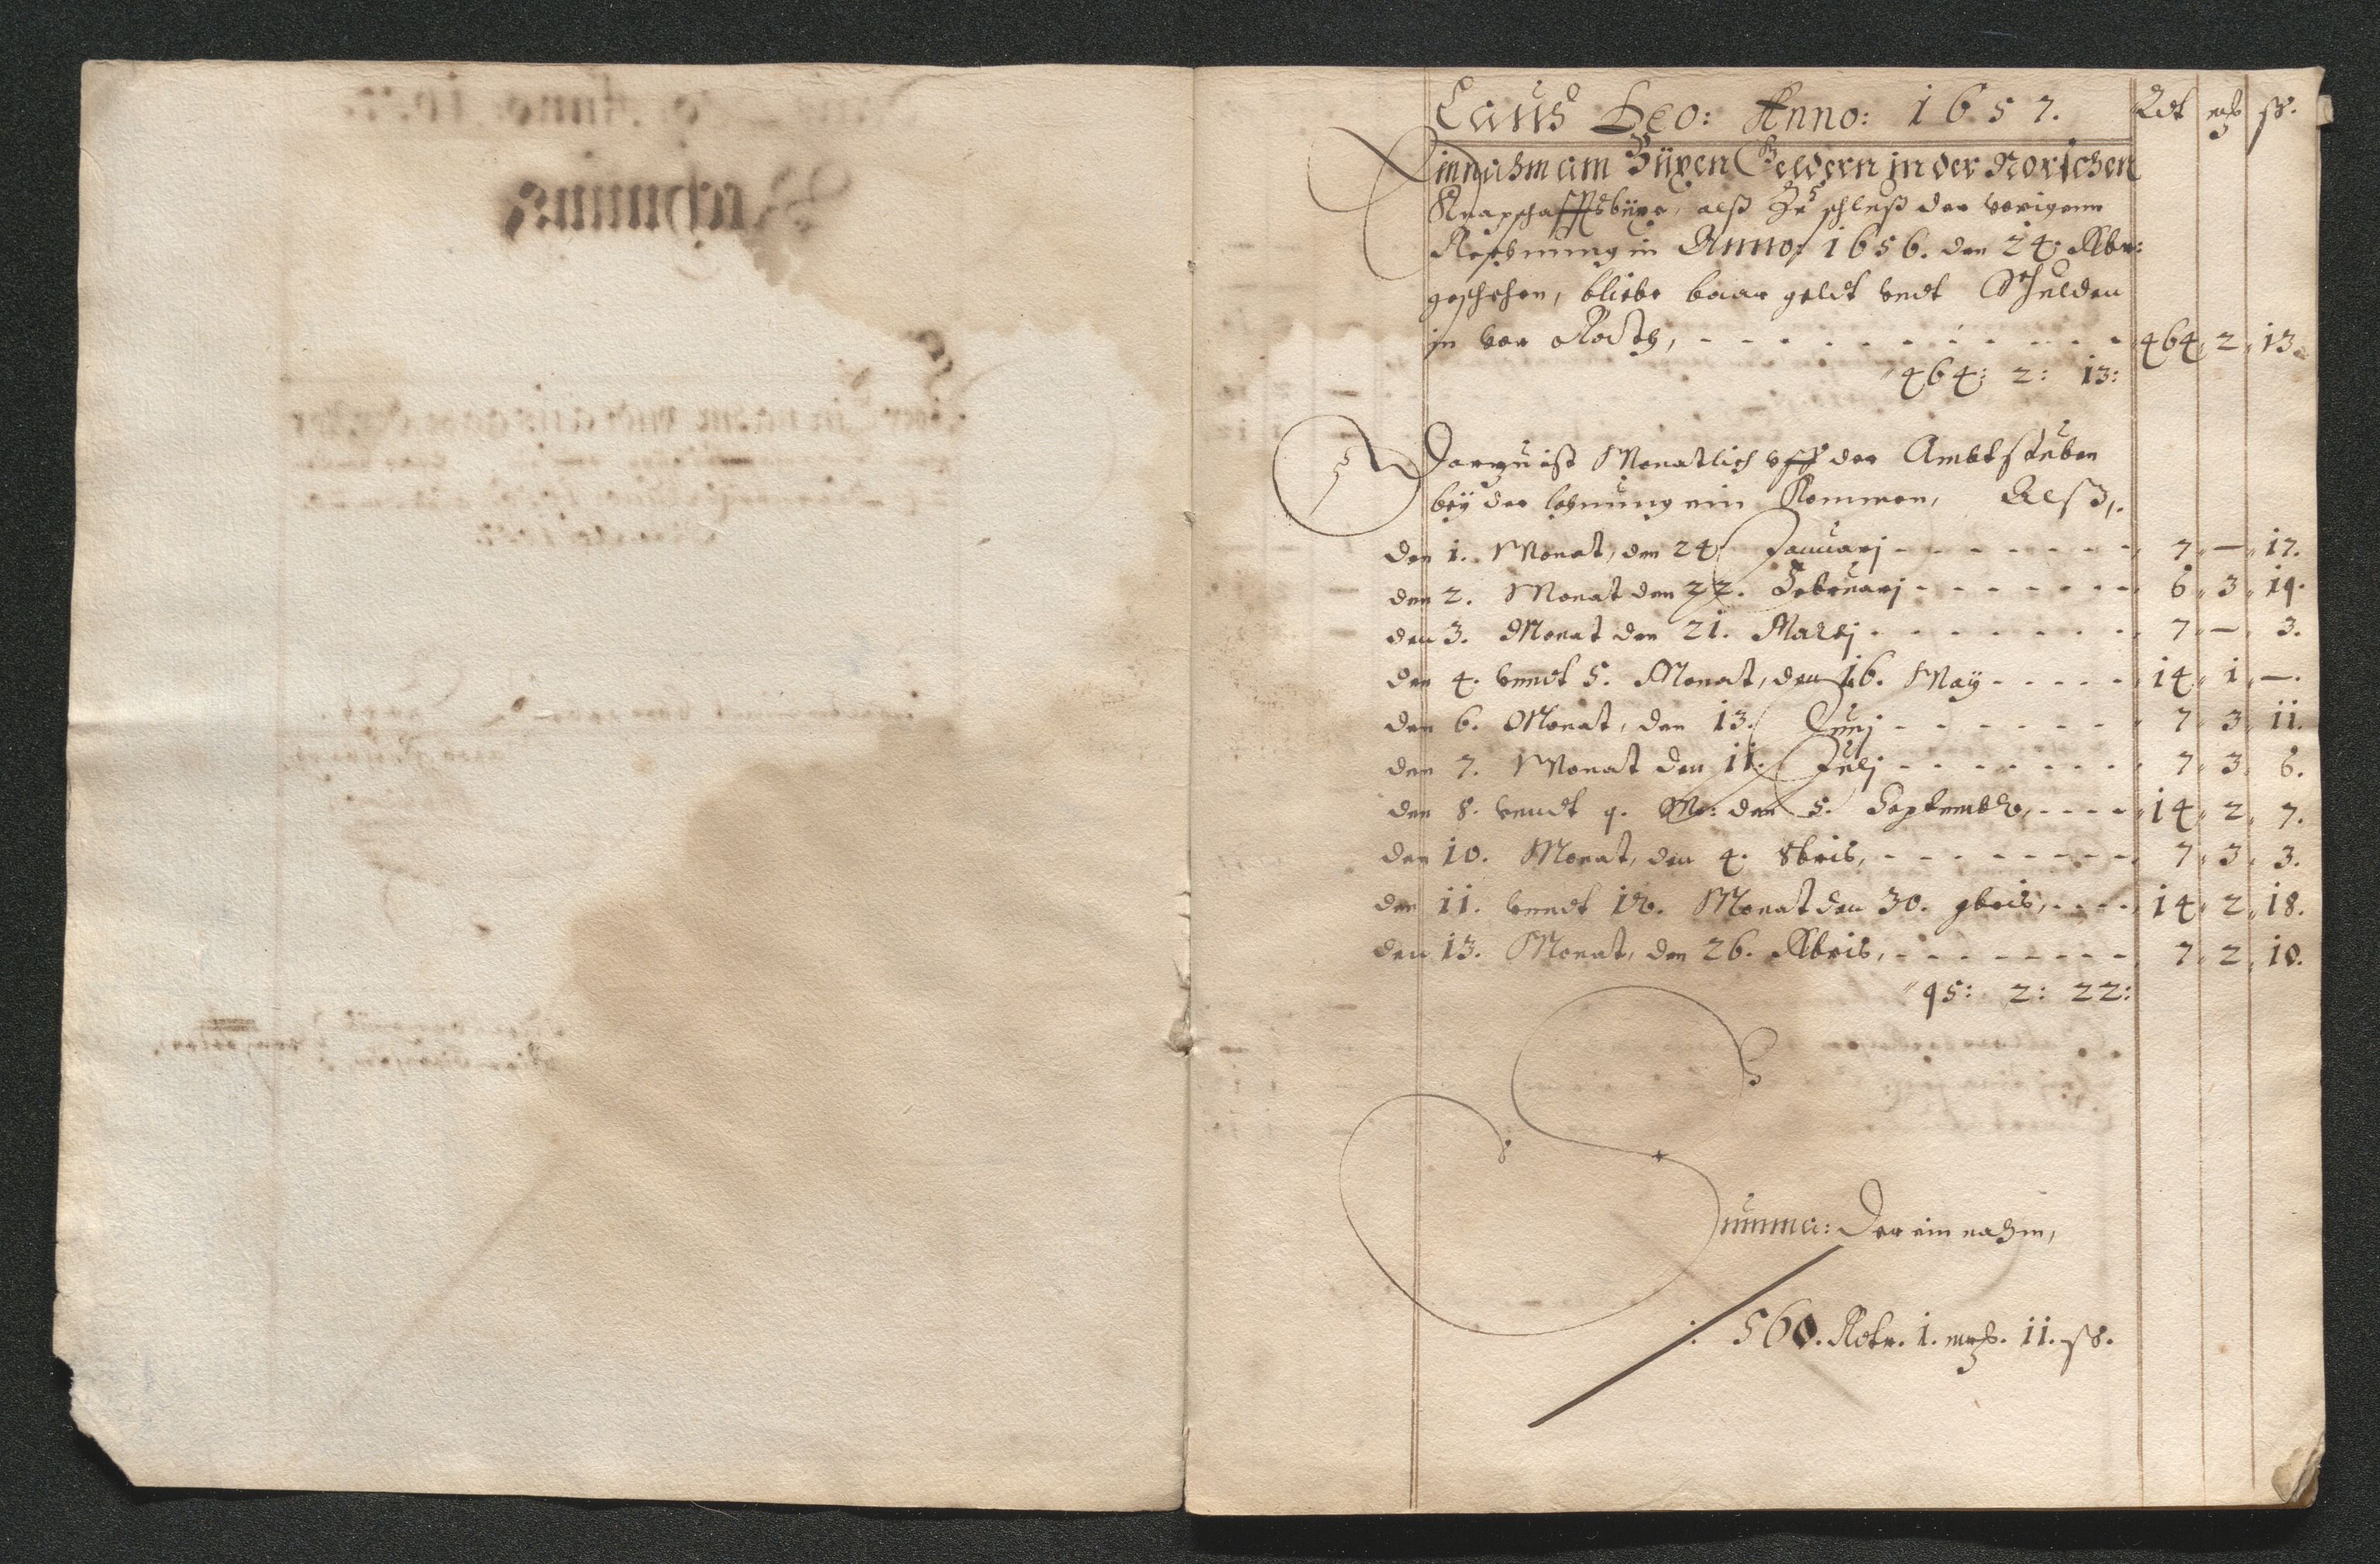 Laus Deo: Anno: 1657. Rdt mß ß.
Einnahm am Büxen Geldern in der Norschen
Knapschafftsbüxe, alß Zu schluß der vorigenn
Rechnung in Anno: 1656. den 24. Xbr:
geschehen, bliebe baar geldt vndt Schulden
in vor Rath, 464 2 13.
464: 2: 13:
Darzu ist Monatlich vff der Ambtstuben
bey der lohnung ein Kommen, Alß,
den 1. Monat, den 24. Januarj 7 — 17.
den 2. Monat den 22. Februarj 6 3 19.
den 3. Monat den 21. Martj 7 — 3.
den 4. vnndt 5. Monat, den 16. May 14 1 —.
den 6. Monat, den 13. Junj 7 3 11.
den 7. Monat den 11. Julj 7 3 6.
den 8. vnndt 9. Mo: den 5. Septemb 14 2 7.
den 10. Monat, den 4. 8bris, 7 3 3.
den 11. vnndt 12. Monat den 30. 9bris, 14 2 18.
den 13. Monat, den 26. Xbris, 7 2 10.
95: 2: 22:
Summa: Der ein nahm,
560. Rdtr. 1. mrß. 11. ß.